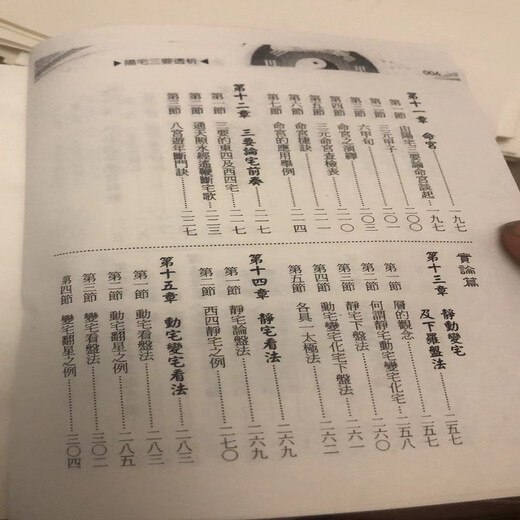 陽宅三要透析
004
第十一章 命宮……一九七
第一節 由陽宅三要論命宮談起……一九七
第二節 三元甲子……二〇〇
第三節 六甲旬……二〇三
第四節 命宮之演繹……二一〇
第五節 三元命宮查檢表……二一一
第六節 命宮捷訣……二一四
第七節 命宮的應用舉例……二一四
第十二章 三要論宅前奏……二一七
第一節 三要的東四及西四宅……二一七
第二節 通天照水經遙鞭斷宅歌……二二三
第三節 八宮遊年斷門訣……二二七
實論篇
第十三章 靜動變宅及下羅盤法……二五七
第一節 層的觀念……二五七
第二節 何謂靜宅動宅變宅化宅……二五八
第三節 靜宅下盤法……二六〇
第四節 動宅變宅化宅下盤法……二六一
第五節 各具一太極法……二六二
第十四章 靜宅看法……二六九
第一節 靜宅論盤法……二六九
第二節 西四靜宅之例……二七〇
第十五章 動宅變宅看法……二八三
第一節 動宅看盤法……二八三
第二節 動宅翻星之例……二八五
第三節 變宅看盤法……三〇二
第四節 變宅翻星之例……三〇四